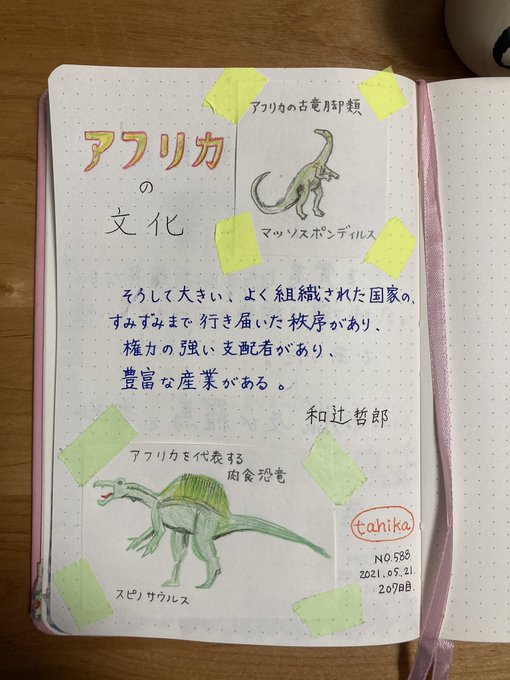 アフリカ
の
文化
アフリカの古竜脚類
マッソスポンディルス
そうして大きい、よく組織された国家の、
すみずみまで行き届いた秩序があり、
権力の強い支配者があり、
豊富な産業がある。
和辻哲郎
アフリカを代表する
肉食恐竜
スピノサウルス
tahika
NO.588
2021.05.21.
207日目